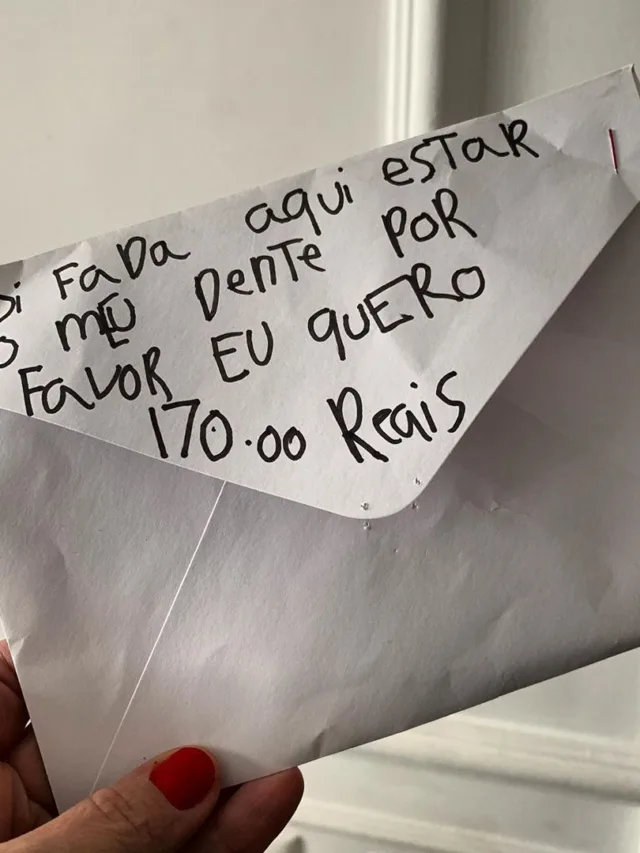 Oi FaDa aqui esTaR
O MEU DenTe PoR
FavoR EU qUERO
170.00 Reais